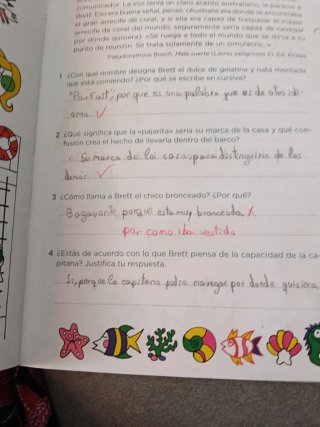 comunicador. La voz tenía un claro acento australiano, le pareció a
Brett. Eso era buena señal, pensó. (Australia era donde se encontraba
el gran arrecife de coral, y si ella era capaz de traspasar el mayor
arrecife de coral del mundo, seguramente sería capaz de navegar
por donde quisiera). «Se ruega a todo el mundo que se dirija a su
punto de reunión. Se trata solamente de un simulacro...».
Pseudonymous Bosch, Male suerte (Libros peligrosos 2). Ed. Anaya
1 ¿Con qué nombre designa Brett el dulce de gelatina y nata montada
que está comiendo? ¿Por qué se escribe en cursiva?
Parfast, porque es una palabra que es de otro idi-
oma.
2 ¿Qué significa que la «pajarita» sería su marca de la casa y qué con-
fusión crea el hecho de llevarla dentro del barco?
Su marca de la casa, para distinguirse de los
demás.
3 ¿Cómo llama a Brett el chico bronceado? ¿Por qué?
Bogavante, porque esta muy bronceado.
por como iba vestido
4 ¿Estás de acuerdo con lo que Brett piensa de la capacidad de la ca-
pitana? Justifica tu respuesta.
Si, porque la capitana podia navegar por donde quisiera